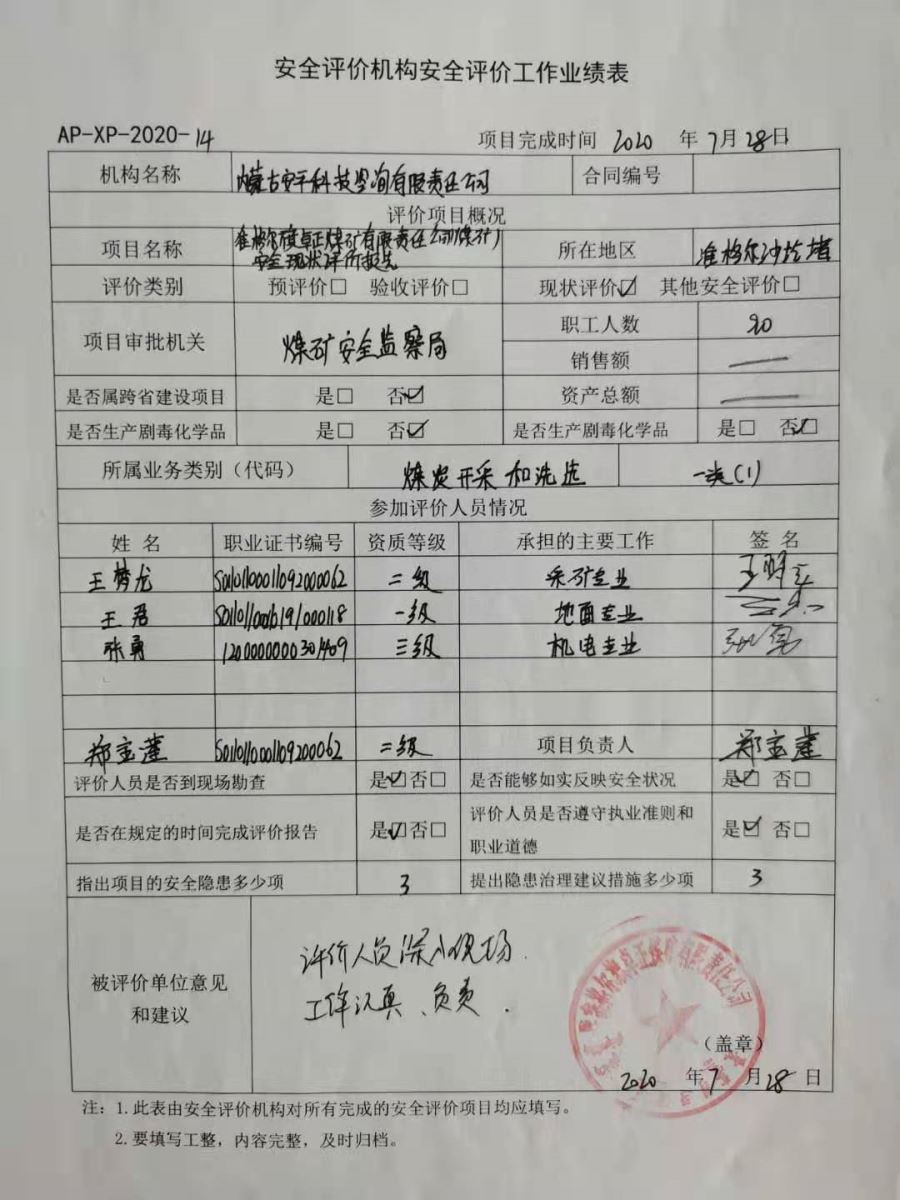 安全评价机构安全评价工作业绩表
AP-XP-2020-14 项目完成时间 2020 年 7月 28日
机构名称 内蒙古安平科技咨询有限责任公司 合同编号
评价项目概况
项目名称 准格尔旗卓正煤矿有限责任公司(煤矿) 所在地区 准格尔沙圪堵
安全现状评价报告
评价类别 预评价□ 验收评价□ 现状评价☑ 其他安全评价□
项目审批机关 煤矿安全监察局 职工人数 90
销售额 ——
是否属跨省建设项目 是□ 否☑ 资产总额 ——
是否生产剧毒化学品 是□ 否☑ 是否生产剧毒化学品 是□ 否☑
所属业务类别（代码） 煤炭开采和洗选 一类(1)
参加评价人员情况
姓 名 职业证书编号 资质等级 承担的主要工作 签 名
王梦龙 S01101100011092000062 二级 采矿专业
王君 一级 地面专业
张勇 1200000000301409 三级 机电专业 张勇
郑宝莲 S011011000110920062 二级 项目负责人 郑宝莲
评价人员是否到现场勘查 是☑否□ 是否能够如实反映安全状况 是☑ 否□
是否在规定的时间完成评价报告 是☑否□ 评价人员是否遵守执业准则和职业道德 是☑ 否□
指出项目的安全隐患多少项 3 提出隐患治理建议措施多少项 3
被评价单位意见和建议
评价人员深入现场.
工作认真、负责.
（盖章）
2020 年 7 月 28 日
注：1. 此表由安全评价机构对所有完成的安全评价项目均应填写。
2. 要填写工整，内容完整，及时归档。